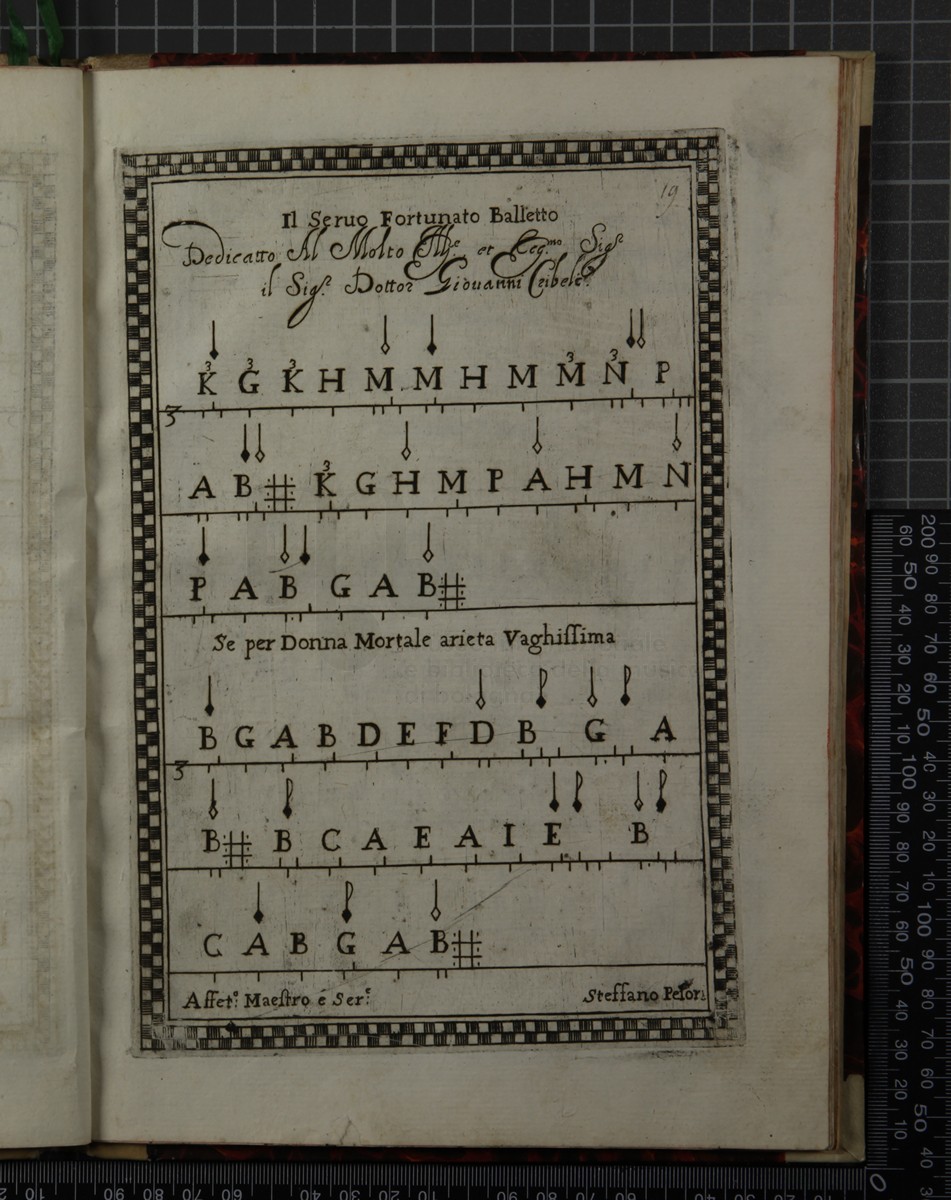 19
Il Seruo Fortunato Balletto
Dedicatto Al Molto Ill.re et Ecg.mo Sig.r
il Sig.r Dottor Giouanni
3 3 3 3 3
K G K H M M H M M N P
3
3
A B K G H M P A H M N
P A B G A B
Se per Donna Mortale arieta Vaghiſſima
B G A B D E F D B G A
3
B B C A E A I E B
C A B G A B
Affet.o Maeſtro é Ser.e Steffano Peſori